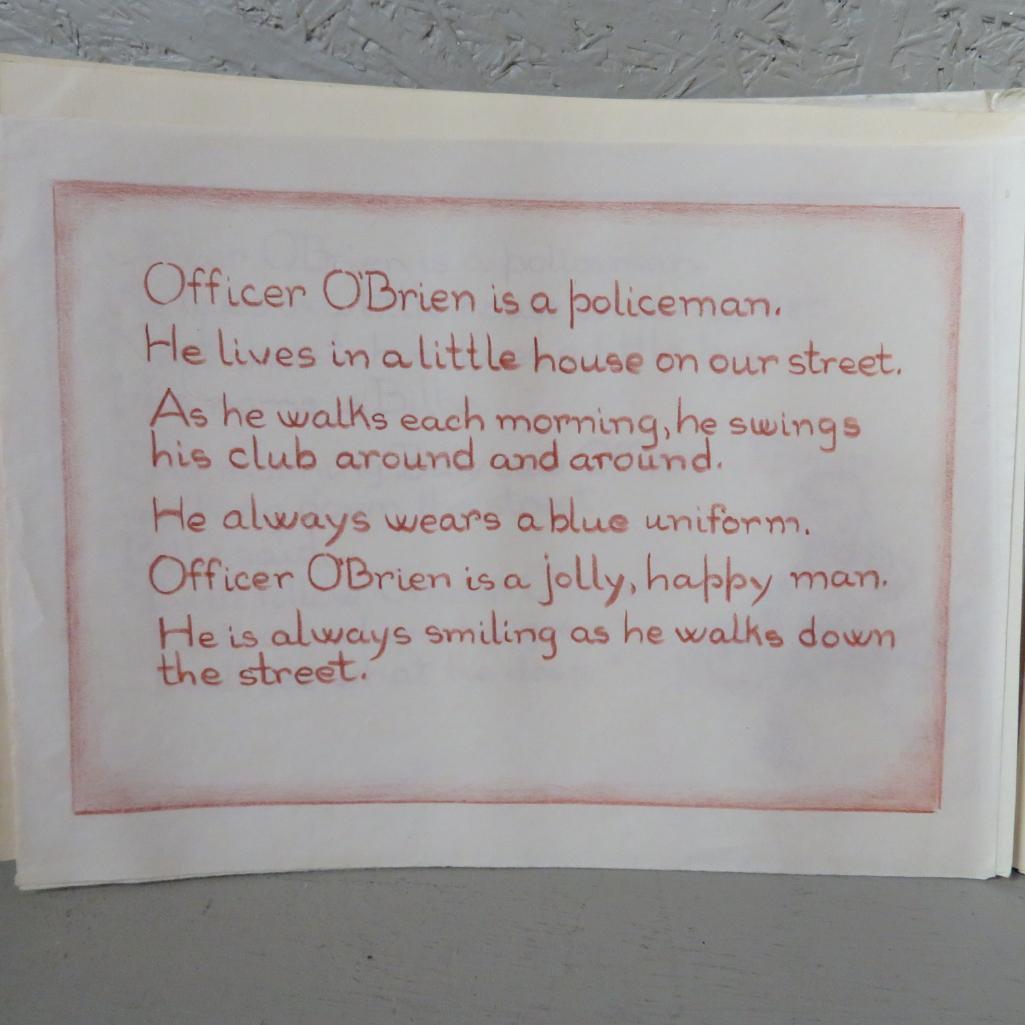 Officer O'Brien is a policeman.
He lives in a little house on our street.
As he walks each morning, he swings
his club around and around.
He always wears a blue uniform.
Officer O'Brien is a jolly, happy man.
He is always smiling as he walks down
the street.